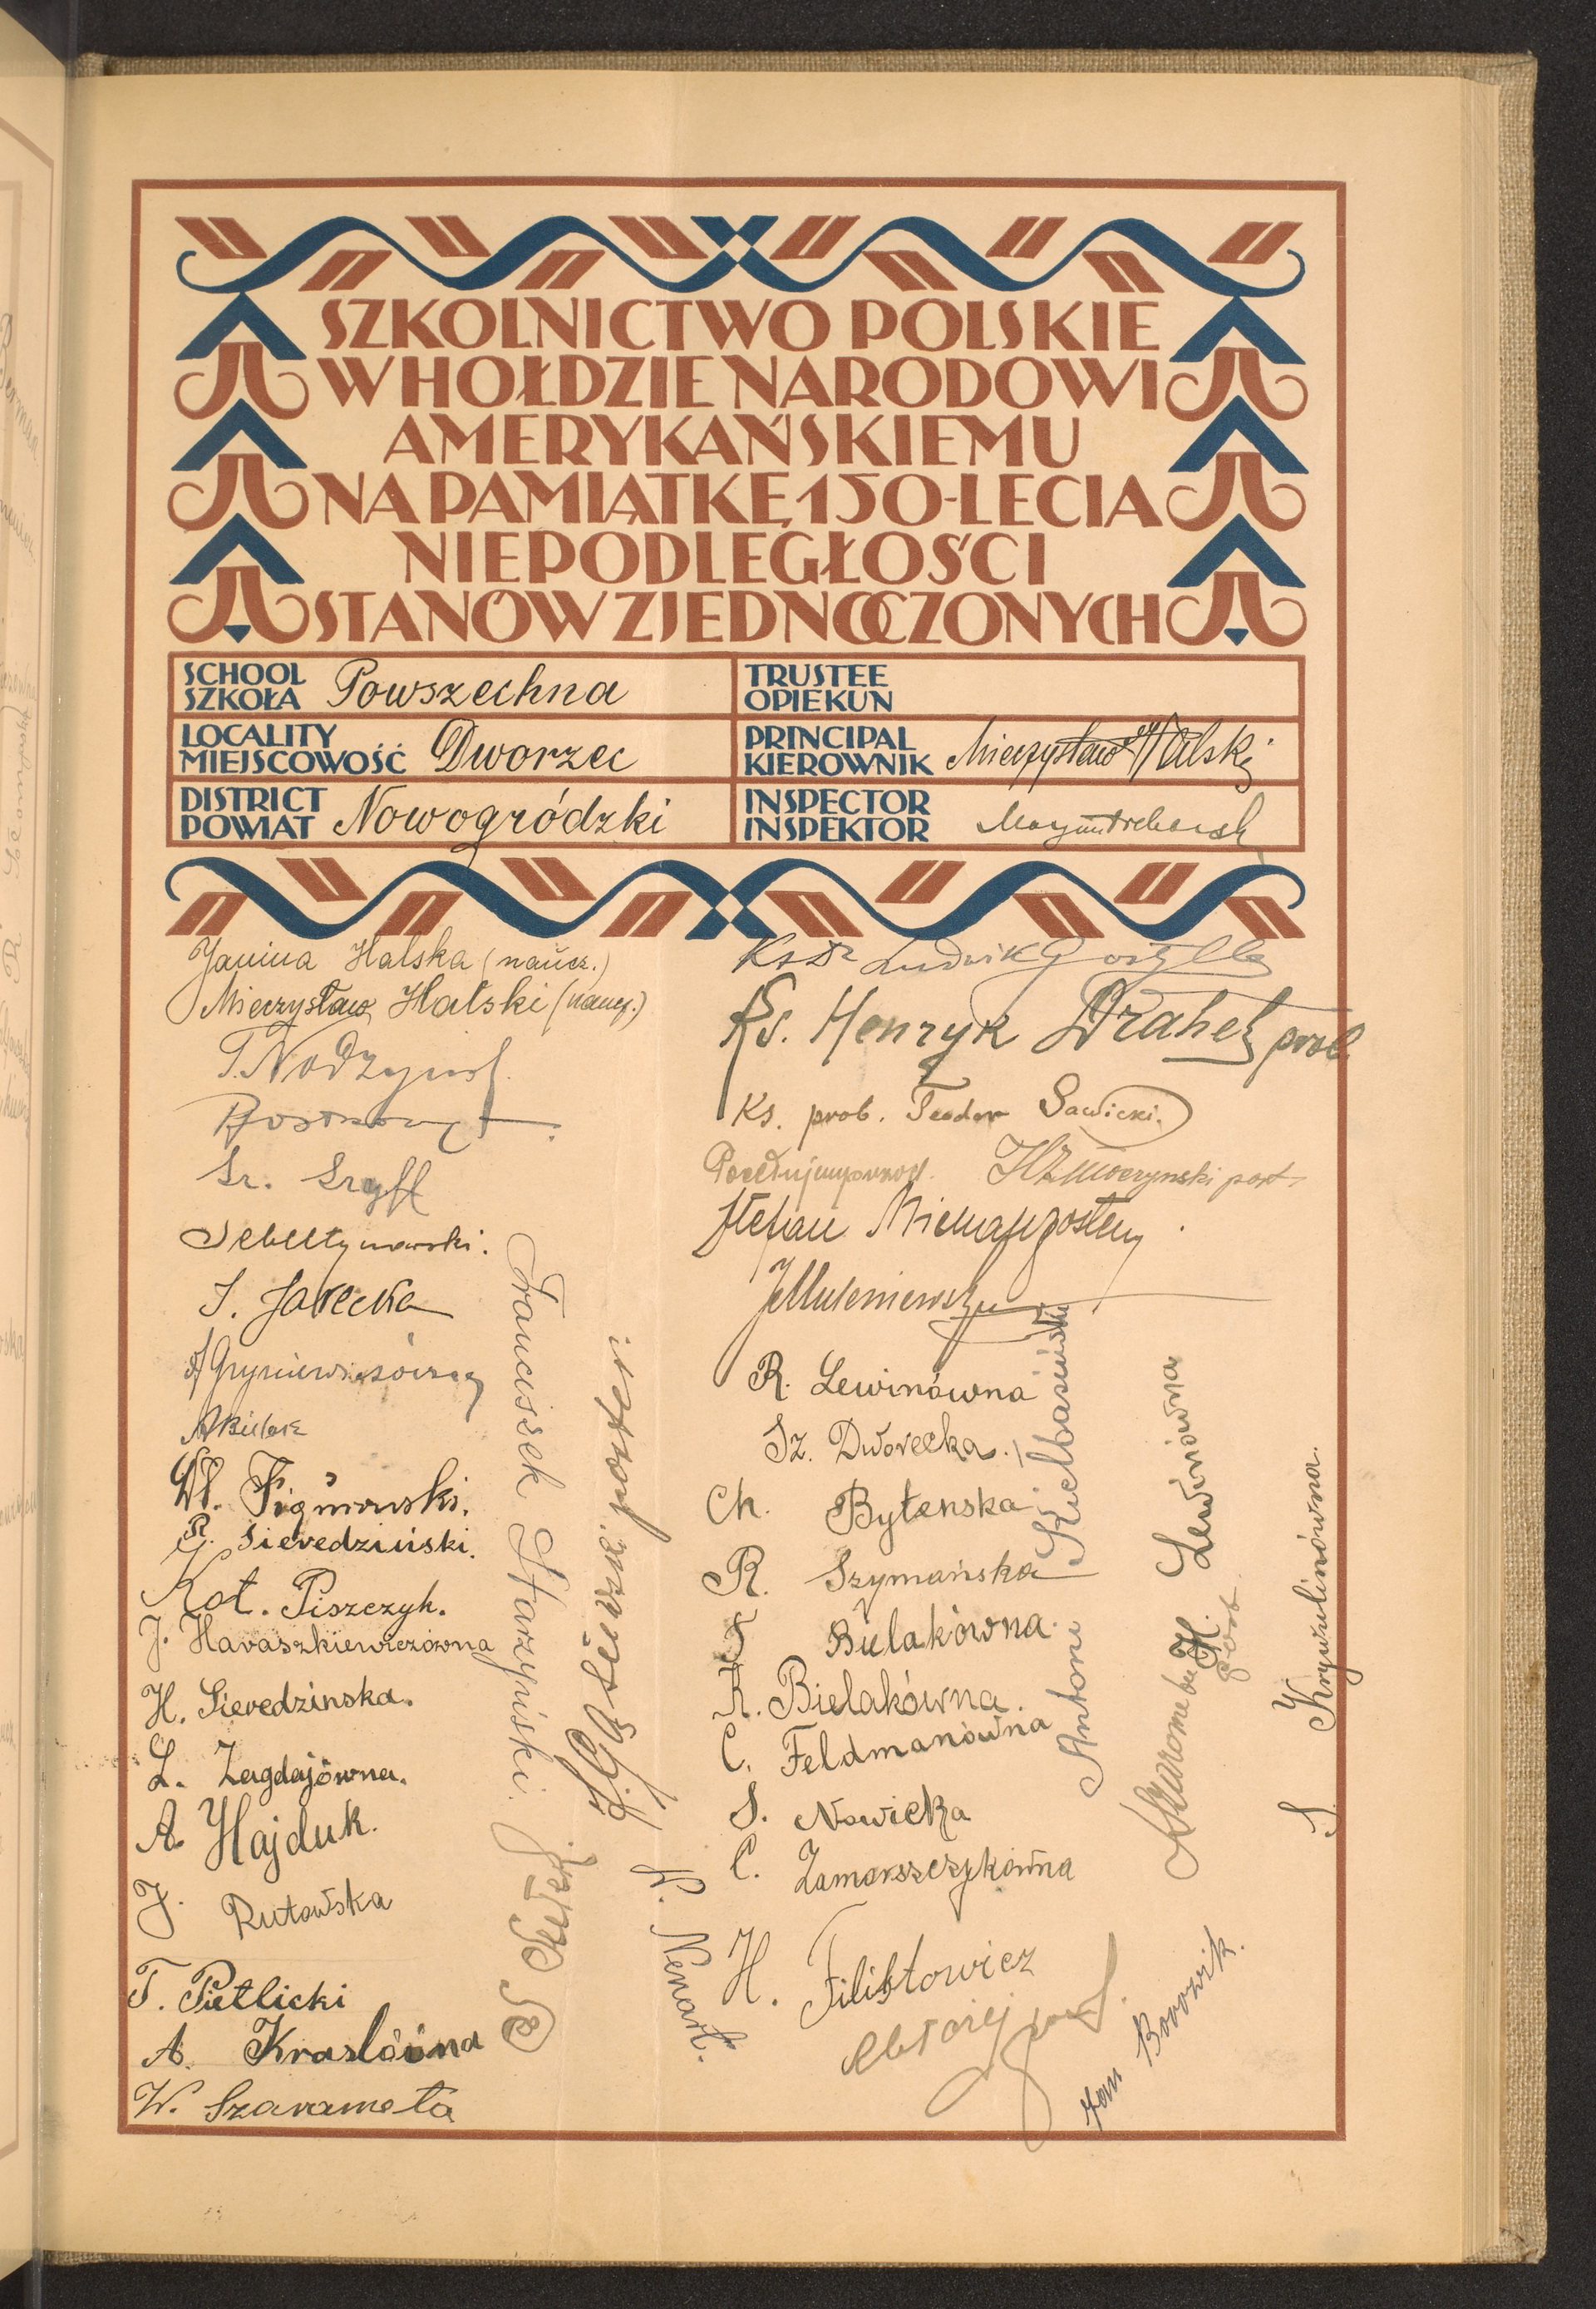 SZKOLNICTWO POLSKIE
W HOŁDZIE NARODOWI
AMERYKAŃSKIEMU
NA PAMIĄTKĘ 150-LECIA
NIEPODLEGŁOŚCI
STANÓW ZJEDNOCZONYCH
SCHOOL
SZKOŁA Powszechna
TRUSTEE
OPIEKUN
LOCALITY
MIEJSCOWOŚĆ Dworzec
PRINCIPAL
KIEROWNIK Mieczysław Halski
DISTRICT
POWIAT Nowogródzki
INSPECTOR
INSPEKTOR
Janina Halska (naucz.)
Mieczysław Halski (naucz.)
Sr.
J. Jarecka
A Bielak
Wł.
Sieredziński.
Kot. Piszczyk.
J. Haraszkiewiczówna
H. Sieredzinska.
L. Zagdajówna.
A. Hajduk.
J. Rutowska
T. Pietlicki
A. Kraslówna
W. Szaramota
Franciszek Starzyński.
poster.
W. Nenart.
Ks Dr Ludwik
Ks. Henryk prob.
Ks. prob. Teodor Sawicki.
post.
Stefan
R. Lewinówna
Sz. Dworecka.
Ch. Bytenska
R. Szymańska
F Bielakówna.
R. Bielakówna.
C. Feldmanówna
S. Nowicka
C. Zamorszczykówna
H. Filistowicz
Antoni Kiełbasiński
H. Lewinówna
S. Krywulinówna.
Jan Borowik.